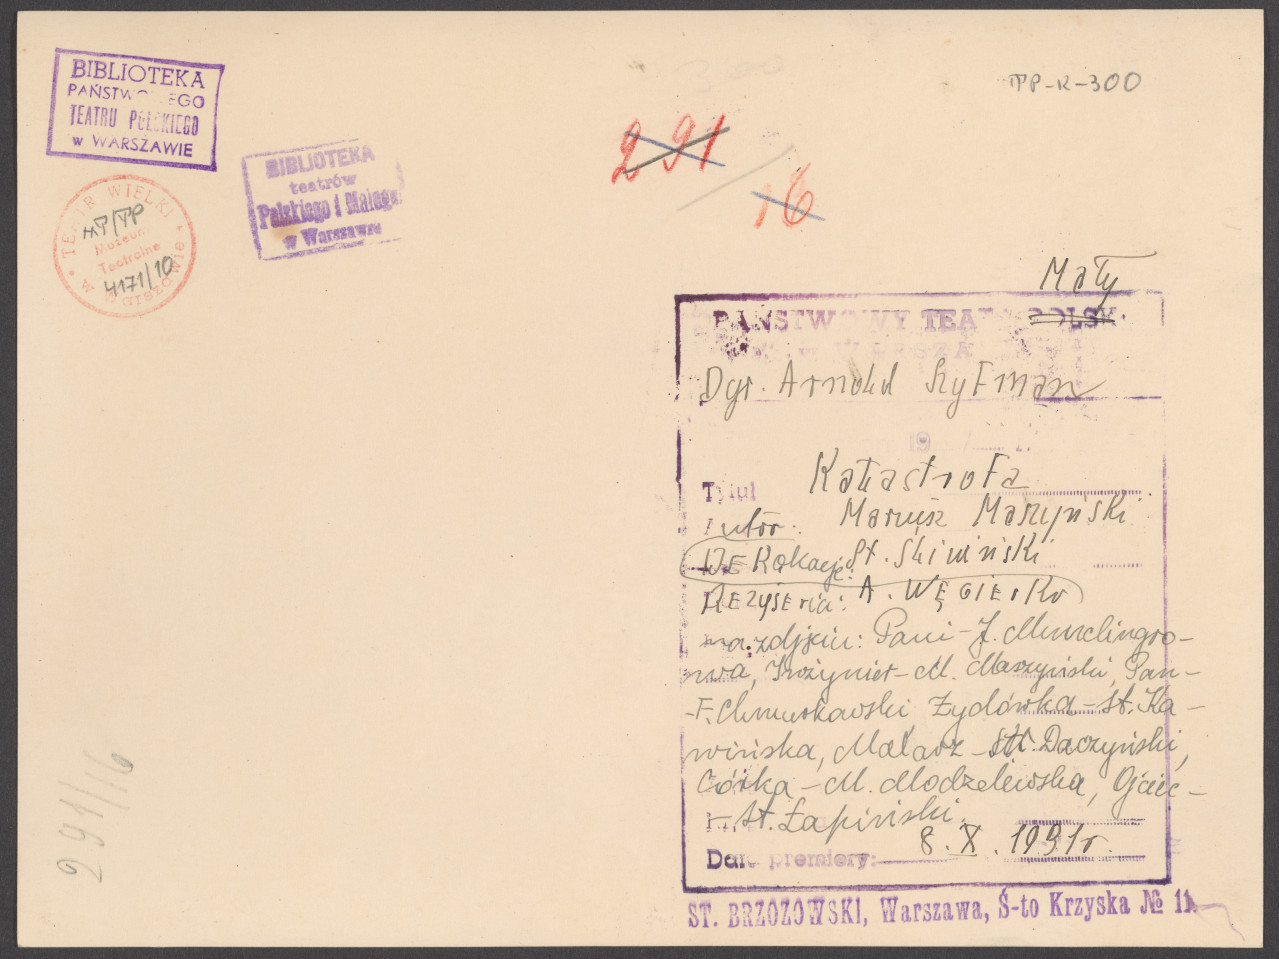 BIBLIOTEKA
PAŃSTW EGO
TEATRU POLSKIEGO
w WARSZAWIE
BIBLIOTEKA
teatrów
Polskiego i Małego
w Warszawie
TEATR WIELKI
w Warszawie
MT/TP
Muzeum
Teatralne
4171/10
TP-K-300
291
16
Mały
PAŃSTWOWY TEATR POLSK
Dyr. Arnold Szyfman
19
Tytuł Katastrofa
Autor. Mariusz Maszyński
Dekoracje: St. Śliwiński
Reżyseria: A. WĘGIERKO
na zdjęciu: Pani - J. Munclingro-
wa, Inżynier - M. Maszyński, Pan -
- F. Chmurkowski, Żydówka - St. Ka-
wińska, Malarz - St. Daczyński,
Córka - M. Modzelewska, Ojciec -
- St. Łapiński.
Data premiery: 8. X. 1931 r.
ST. BRZOZOWSKI, Warszawa, Ś-to Krzyska № 11.
291/16